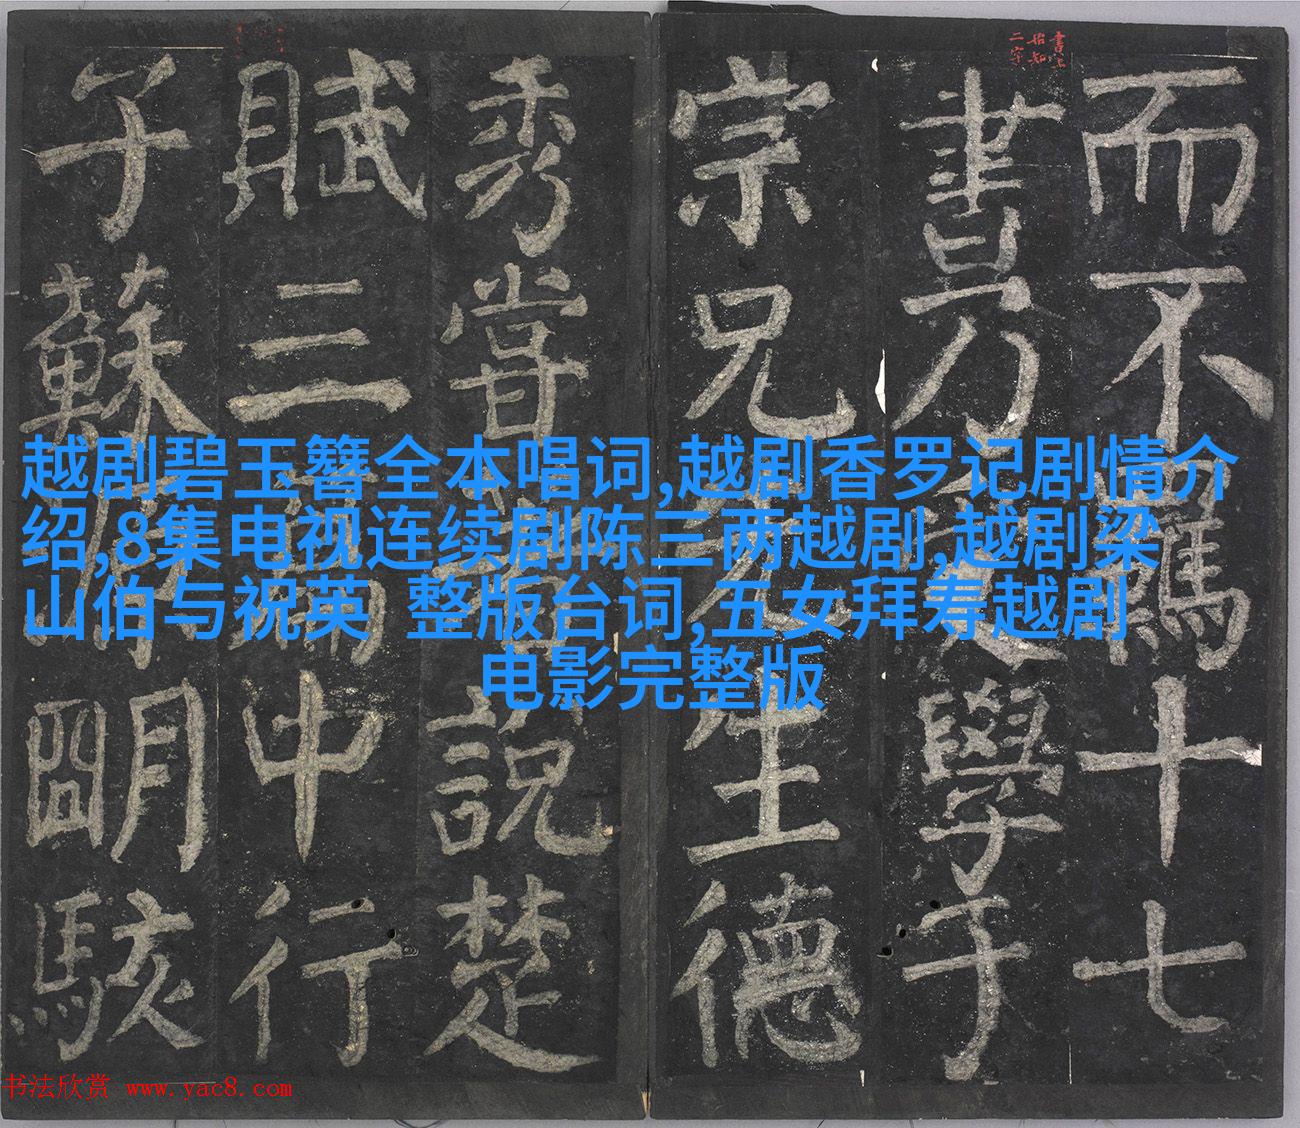 書上
始知
二字
而不羈十七
書乃學于
宗兄生德
秀嘗說楚
賦三篇中行
子蘇明駭
越剧碧玉簪全本唱词,越剧香罗记剧情介
绍,8集电视连续剧陈三两越剧,越剧梁
山伯与祝英 整版台词,五女拜寿越剧
电影完整版
书法欣赏 www.yac8.com